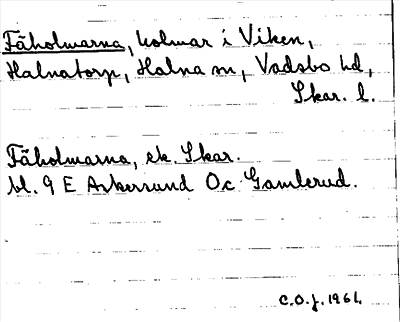 Fäholmarna, holmar i Viken,
Halnatorp, Halna sn, Vadsbo hd,
Skar. l.
Fäholmarna, ek. Skar.
bl. 9 E Askersund Öc Gamlerud.
C.O.J. 1961.